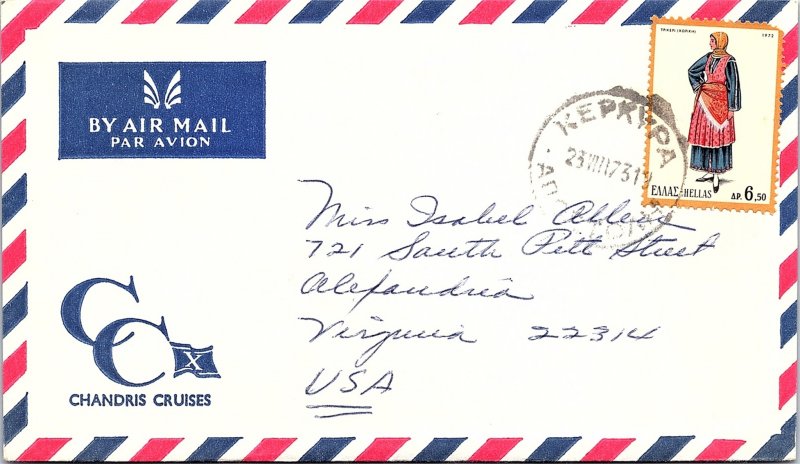 BY AIR MAIL
PAR AVION
1972
ΕΛΛΑΣ-HELLAS ΔΡ. 6,50
ΚΕΡΚΥΡΑ
23 VIII 73 19
Miss Isabel
721 South Pitt Street
Alexandria
Virginia 22314
USA
CC
X
CHANDRIS CRUISES